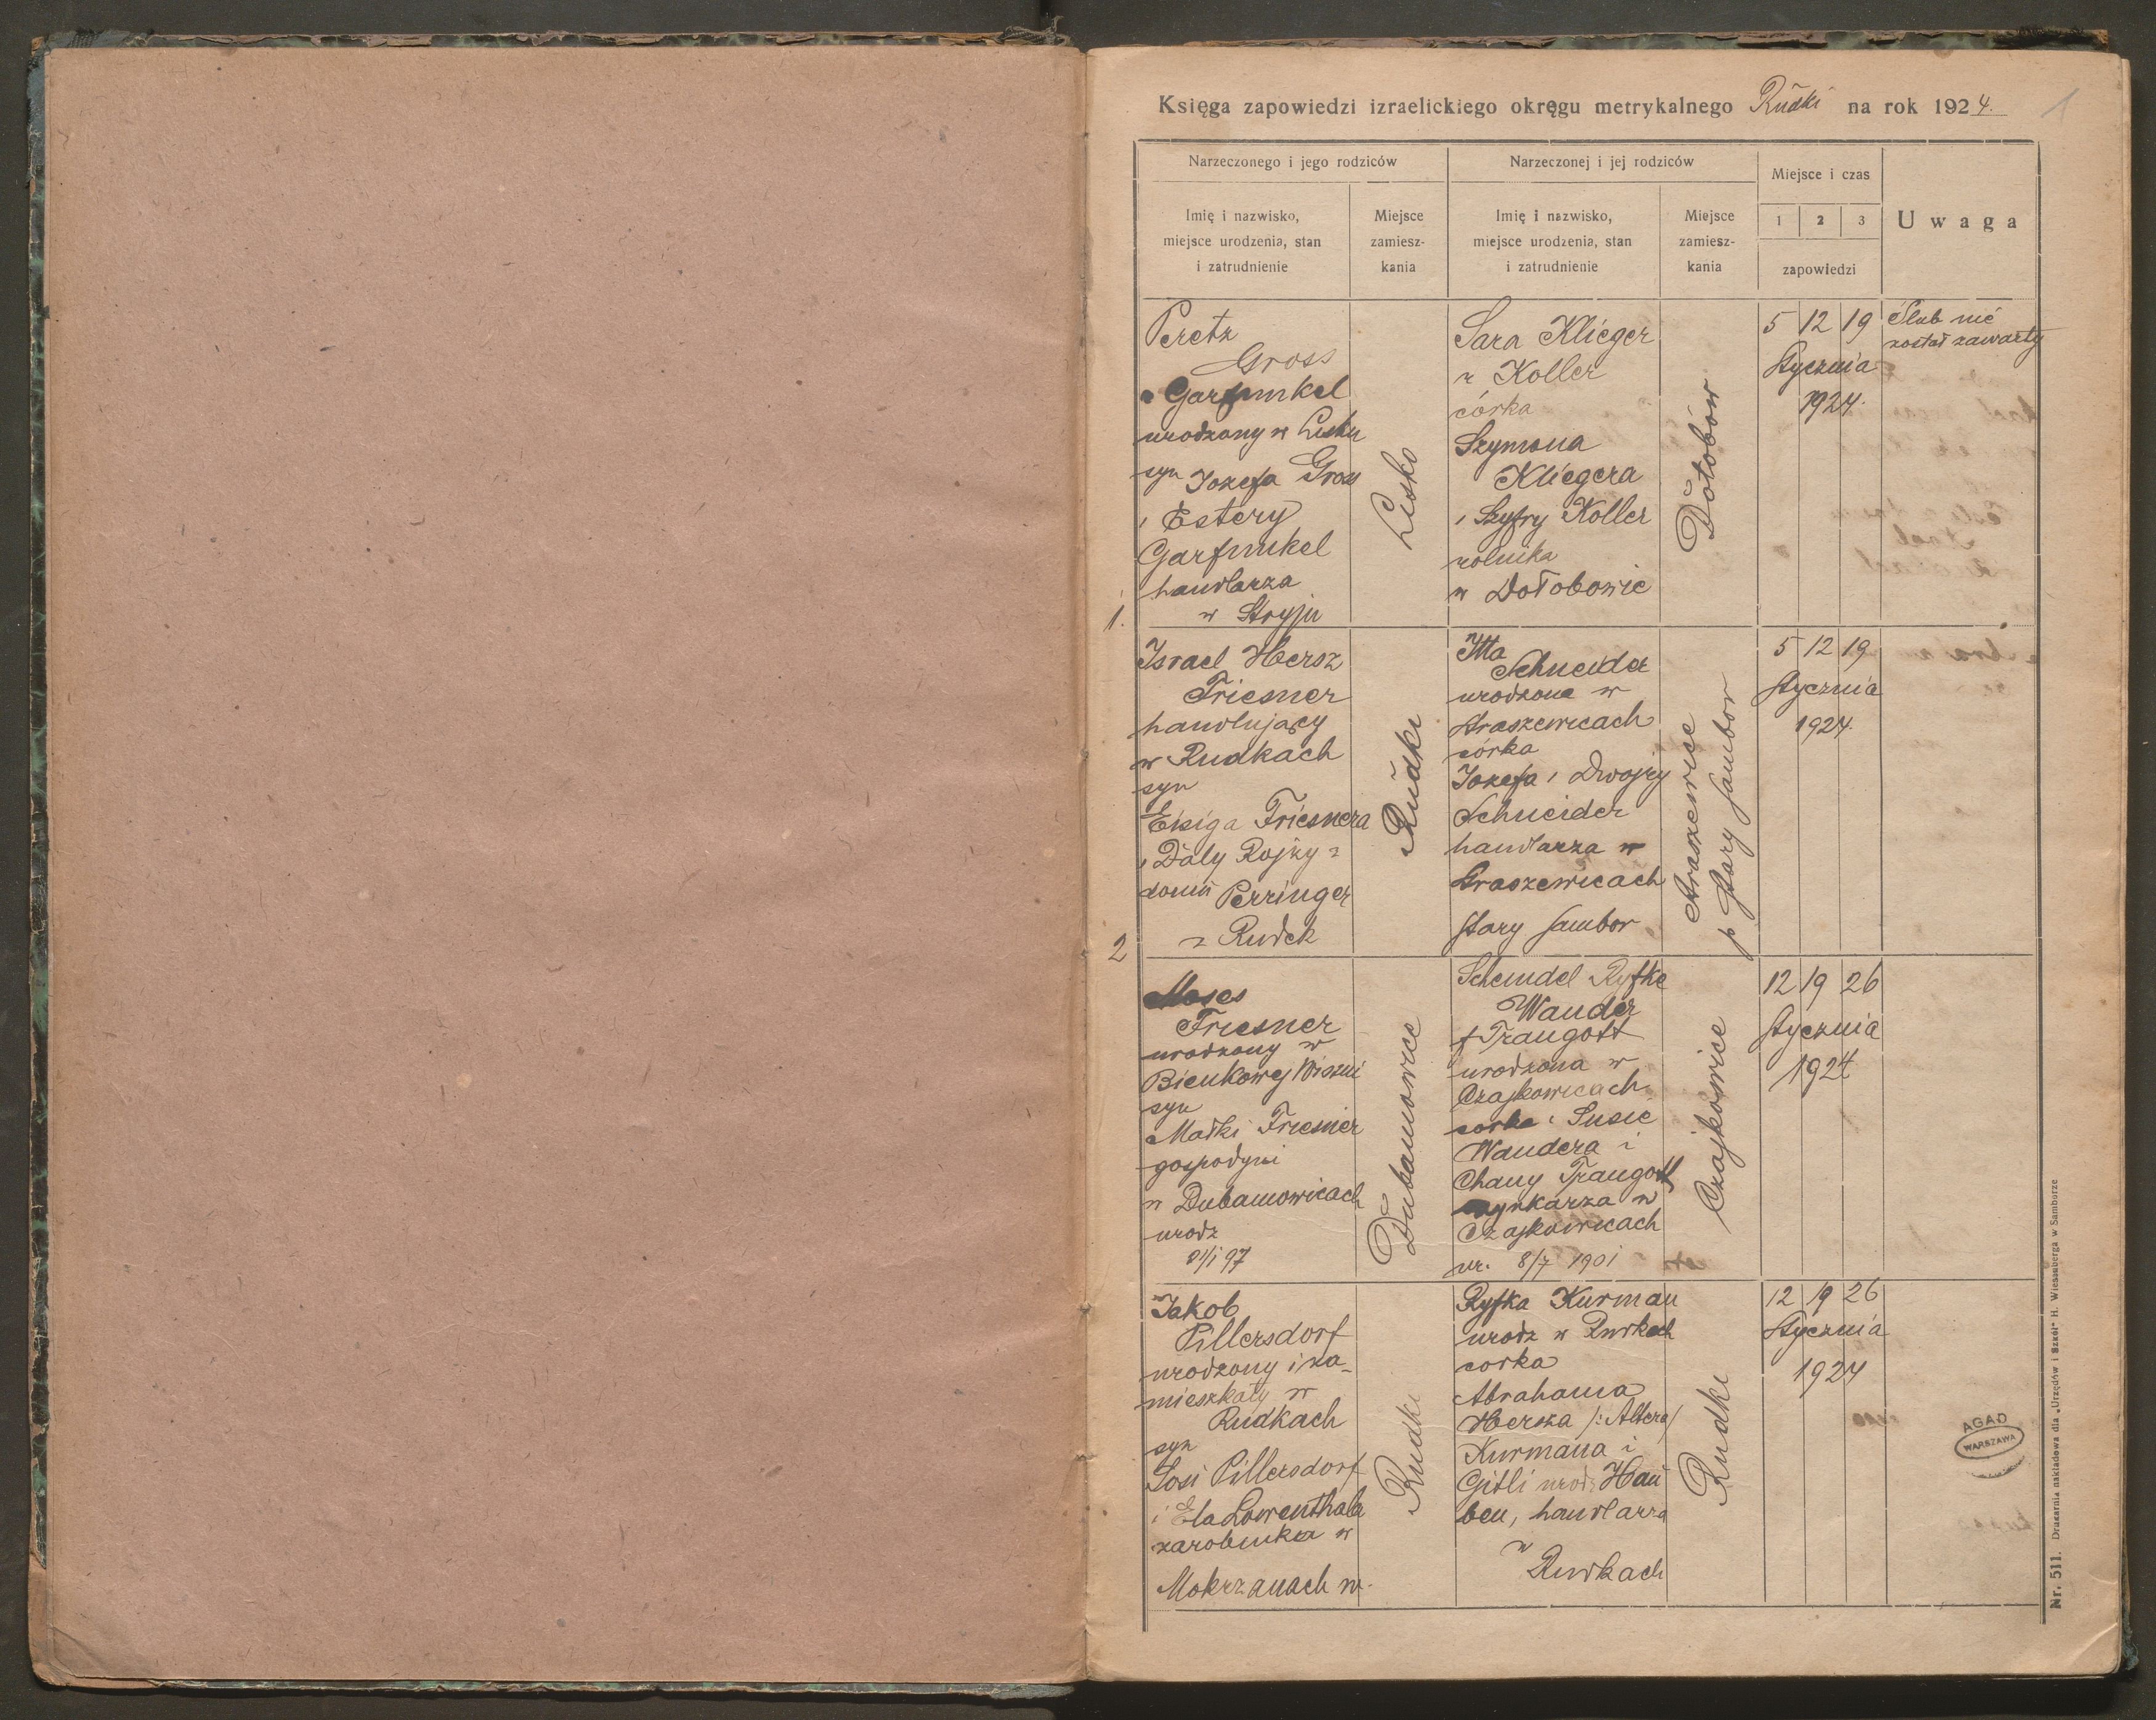 Księga zapowiedzi izraelickiego okręgu metrykalnego Rudki na rok 1924.
1
Narzeczonego i jego rodziców
Narzeczonej i jej rodziców
Miejsce i czas
Uwaga
Imię i nazwisko,
miejsce urodzenia, stan
i zatrudnienie
Miejsce
zamiesz-
kania
Imię i nazwisko,
miejsce urodzenia, stan
i zatrudnienie
Miejsce
zamiesz-
kania
1 2 3
zapowiedzi
1.
Peretz
Gross
Garfunkel
urodzony w Lisku
syn Jozefa Gross
i Estery
Garfunkel
handlarza
w Stryju
Lisko
Sara Klieger
z Koller
córka
Szymona
Kliegera
i Szyfry Koller
rolnika
w Dołobowie
Dołobów
5 12 19
Stycznia
1924.
Ślub nie
został zawarty
2
Israel Hersz
Friesner
handlujący
w Rudkach
syn
Eisiga Friesnera
i Daly Rojzy z
domu Perringer
z Rudek
Rudki
Itta
Schneider
urodzona w
Straszewicach
córka
Jozefa i Dwojry
Schneider
handlarza w
Straszewicach
Stary Sambor
Straszewice
p Stary Sambor
5 12 19
Stycznia
1924.
Moses
Friesner
urodzony w
Bieńkowej Wiszni
syn
Matki Friesner
gospodyni
w Dubanowicach
urodz
21/1 97
Dubanowice
Scheindel Ryfke
Wander
f Traugott
urodzona w
Czajkowicach
córka Susie
Wandera i
Chany Traugott
szynkarza w
Czajkowicach
ur. 8/7 1901
Czajkowice
12 19 26
Stycznia
1924
Jakob
Pillersdorf
urodzony i za-
mieszkały w
Rudkach
syn
Losi Pillersdorf
i Ela Lowenthala
zarobnika w
Mokrzanach w.
Rudki
Ryfka Kurman
urodz w Rudkach
corka
Abrahama
Herska /: Altera/
Kurmana i
Gitli urodz Hau
ben, handlarza
w
Rudkach
Rudki
12 19 26
Stycznia
1924
AGAD
WARSZAWA
Nr. 511. Drukarnia nakładowa dla „Urzędów i Szkół" H. Wiesenberga w Samborze